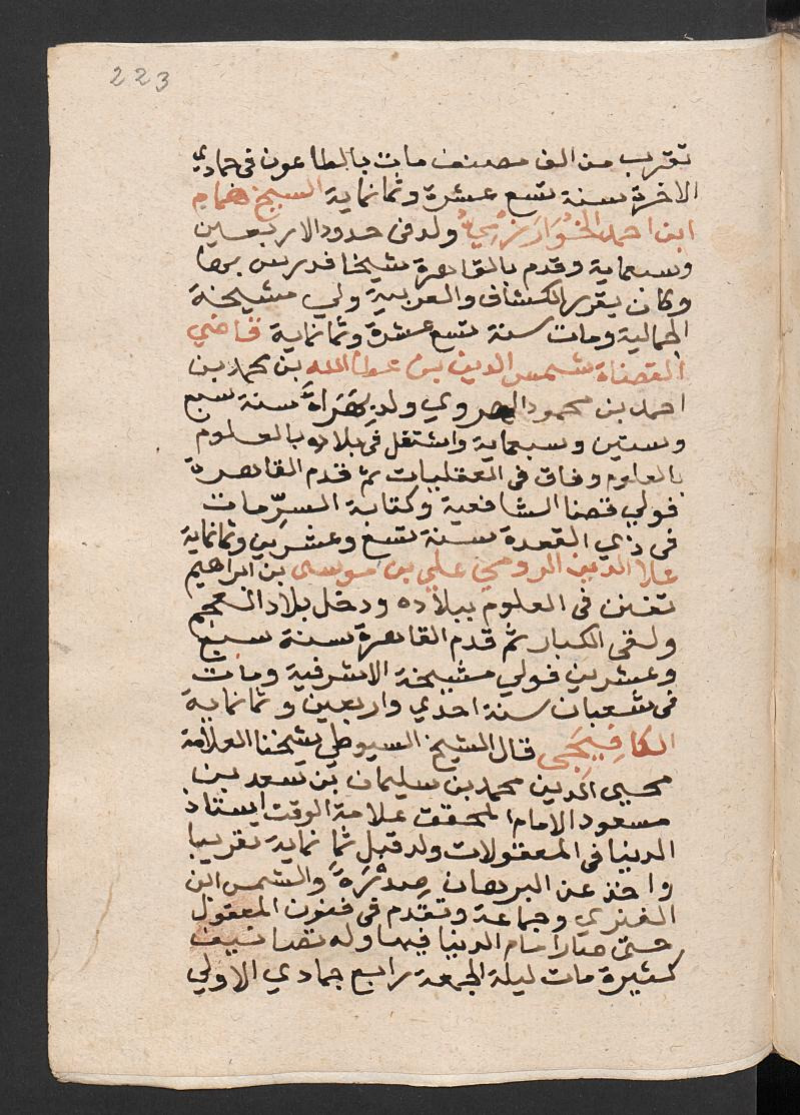 223
تقرب من الف مصنف مات بالطاعون في جمادي
الاخرة سنة تسع عشرة وثمانماية الشيخ همام
ابن احمد الخُوَارَزْمِيُّ ولد في حدود الاربعين
وسبعماية وقدم بالقاهرة شيخا فدرس بها
وكان يقرر الكشاف والعربية ولي مشيخة
الجمالية ومات سنة تسع عشرة وثمانماية قاضي
القضاة شمس الدين بن عطا الله بن محمد بن
احمد بن محمود الهروي ولد بهَرَاةَ سنة سبع
وستين وسبعماية واشتغل في بلاده بالعلوم
بالعلوم وفاق في العقليات ثم قدم القاهرة
فولي قضا الشافعية وكتابة السرِّ مات
في ذي القعدة سنة تسع وعشرين وثمانماية
علا الدين الرومي علي بن موسى بن ابراهيم
تفنن في العلوم ببلاده ودخل بلاد العجم
ولقى الكبار ثم قدم القاهرة سنة سبع
وعشرين فولي مشيخة الاشرفية ومات
في شعبان سنة احدي واربعين وثمانماية
الكافِيَجى قال الشيخ السيوطي شيخنا العلامة
محيى الدين محمد بن سليمان بن سعد بن
مسعود الامام المحقق علامة الوقت استاذ
الدنيا في المعقولات ولد قبل ثمانماية تقريبا
واخذ عن البرهان حيدْرَةَ والشمس ابن
الفنري وجماعة وتقدم في فنون المعقول
حتى صار امام الدنيا فيها وله تصانيف
كثيرة مات ليلة الجمعة رابع جمادي الاولي